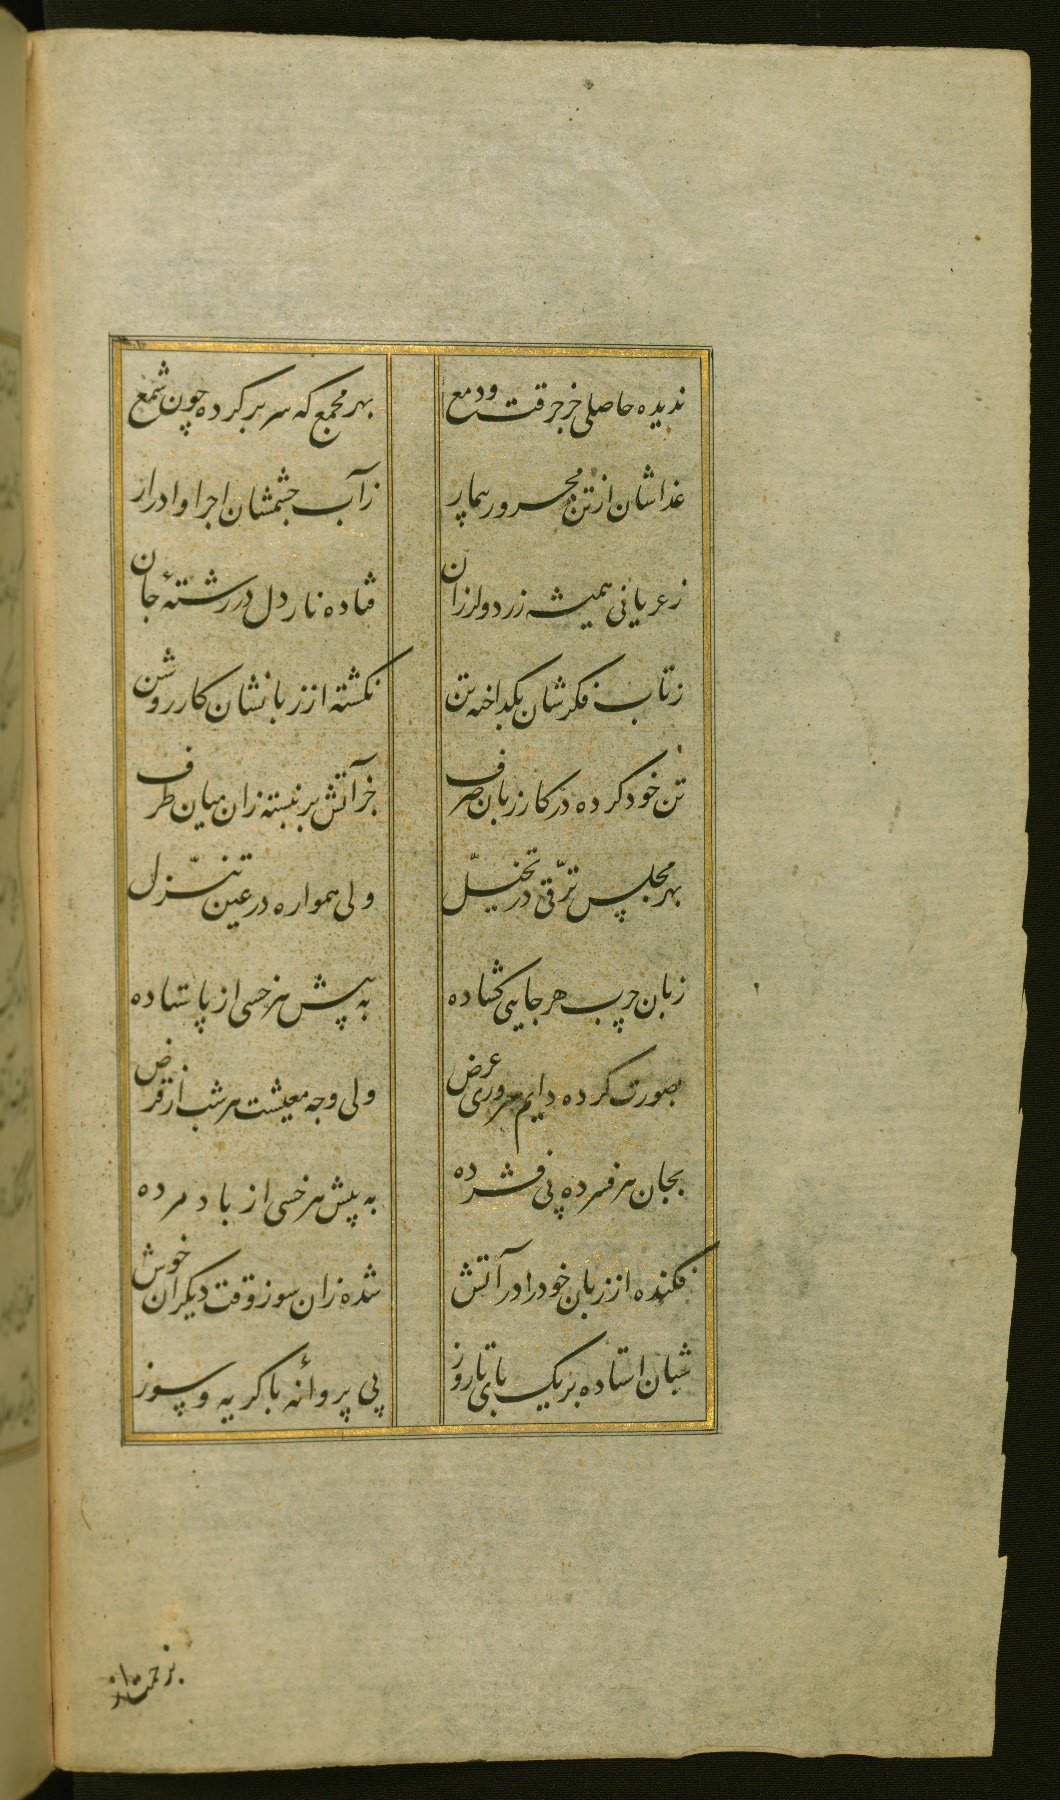 ندیده حاصلی جز حرقت و دمع بهر مجمع که سر بر کرده چون شمع
غذاشان از تن محرور بیمار ز آب چشمشان اجرا و ادرار
ز عریانی همیشه زرد و لرزان فتاده نار دل در رشتهٔ جان
ز تاب فکرشان بکداخته تن نکشته از زبانشان کار روشن
تن خود کرده در کار زبان صرف جز آتش بر نبسته زان میان طرف
بهر مجلس ترقی در تخیّل ولی همواره در عین تنزّل
زبان چرب هر جایی کشاده به پیش هر خسی از پا ستاده
بصورت کرده دایم سروری عرض ولی وجه معیشت هر شب از قرض
بجان هر فسرده پی فشرده به پیش هر خسی از باد مرده
فکنده از زبان خود را در آتش شده زان سوز وقت دیکران خوش
شبان استاده بر یک پای تا روز پی پروانه با کریه و سوز